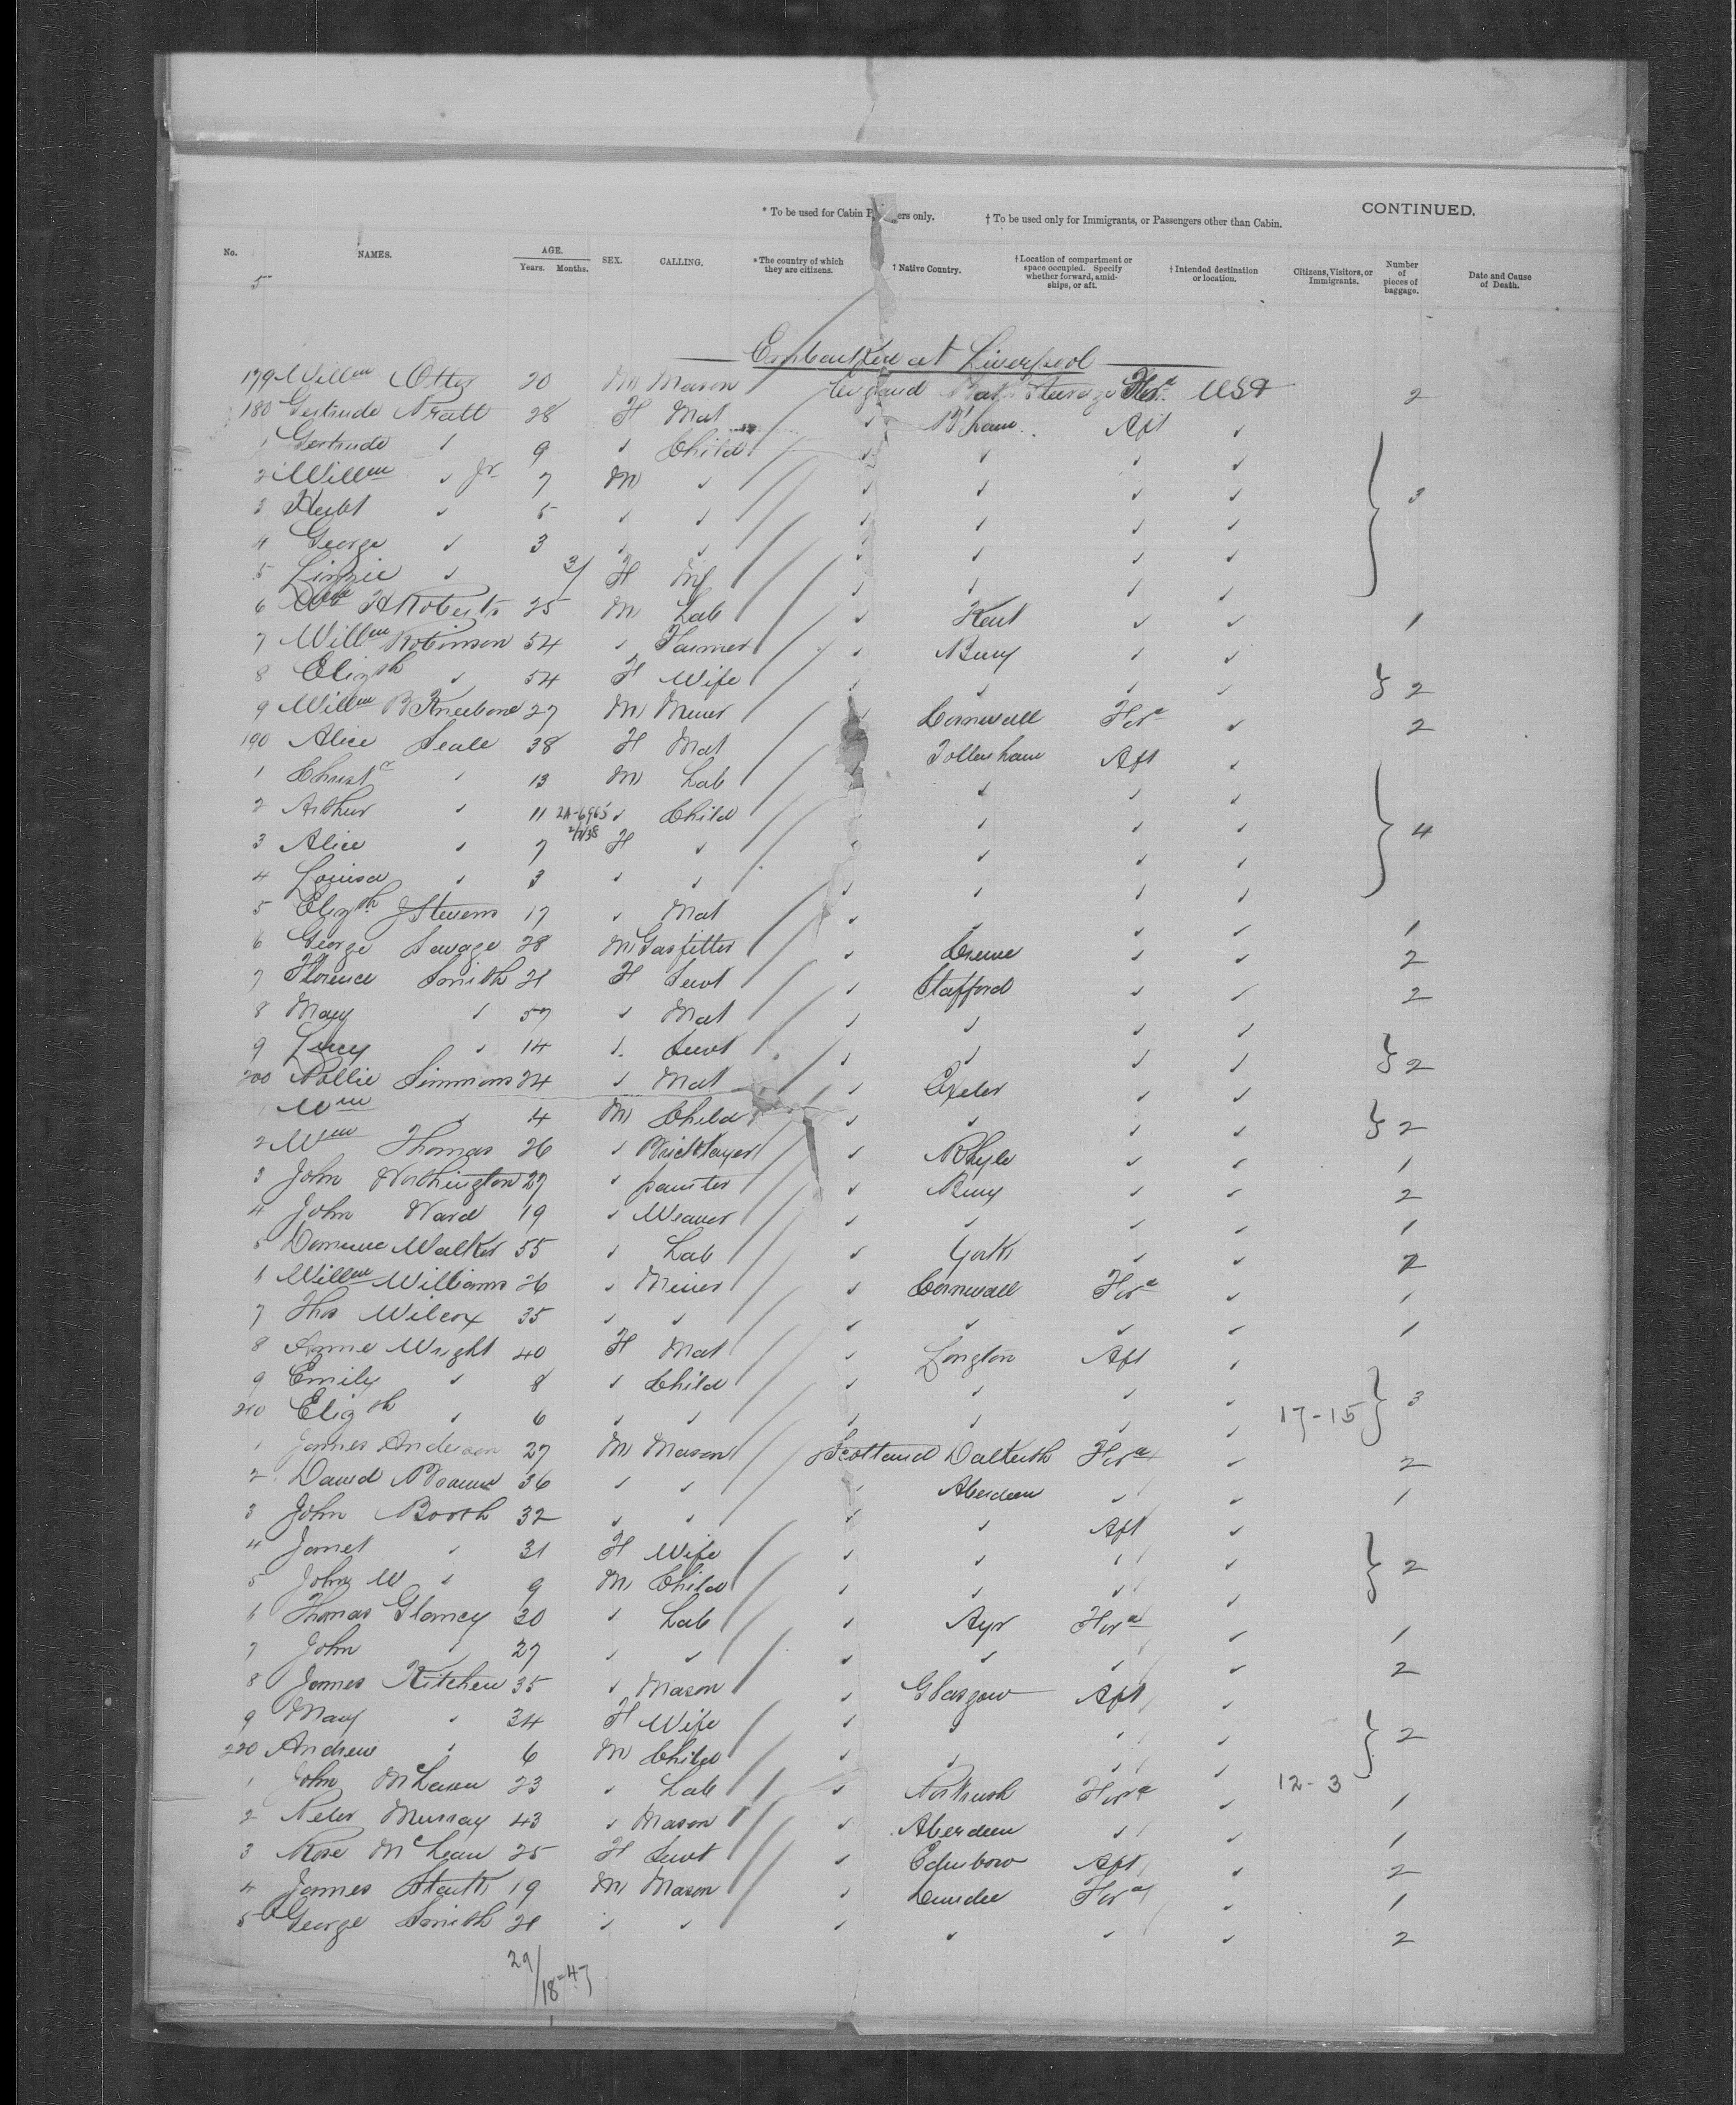 CONTINUED.
* To be used for Cabin P ers only. † To be used only for Immigrants, or Passengers other than Cabin.
No. NAMES. AGE. Years. Months. SEX. CALLING. * The country of which they are citizens. † Native Country. † Location of compartment or space occupied. Specify whether forward, amid-ships, or aft. † Intended destination or location. Citizens, Visitors, or Immigrants. Number of pieces of baggage. Date and Cause of Death.
5
Embarked at Liverpool
179 Willm 20 M Mason England Steerage Ford USA 2
180 Gertrude Pratt 28 F Mat ✓ B'ham Aft ✓
1 Gertrude ✓ 9 ✓ Child ✓ ✓ ✓ ✓
2 Willm ✓ Jr 7 M ✓ ✓ ✓ ✓ ✓ 3
3 Herbt ✓ 5 ✓ ✓ ✓ ✓ ✓ ✓
4 George ✓ 3 ✓ ✓ ✓ ✓ ✓ ✓
5 Lizzie ✓ 3/ F Inf ✓ ✓ ✓ ✓
6 Wm H Roberts 25 M Lab ✓ Kent ✓ ✓ 1
7 Willm Robinson 54 ✓ Farmer ✓ Bury ✓ ✓
8 Elizth ✓ 54 F Wife ✓ ✓ ✓ ✓ } 2
9 Willm B Kneebone 27 M Miner ✓ Cornwall Ford ✓ 2
190 Alice Seale 38 F Mat Tottenham Aft ✓
1 Christr ✓ 13 M Lab ✓ ✓ ✓ ✓
2 Arthur ✓ 11 2A-6965 ✓ Child ✓ ✓ ✓ 4
3 Alice ✓ 7 2/7/38 F ✓ ✓ ✓ ✓ ✓
4 Louisa ✓ 3 ✓ ✓ ✓ ✓ ✓ ✓
5 Elizth J Stevens 17 ✓ Mat ✓ ✓ ✓ 1
6 George Savage 28 M Gasfitter ✓ Crewe ✓ ✓ 2
7 Florence Smith 21 F Servt ✓ Stafford ✓ ✓ 2
8 Mary ✓ 57 ✓ Mat ✓ ✓ ✓ ✓
9 Lucy ✓ 14 ✓ Servt ✓ ✓ ✓ ✓ } 2
200 Pollie Simmons 24 ✓ Mat ✓ Exeter ✓ ✓
1 Wm ✓ 4 M Child ✓ ✓ ✓ ✓ } 2
2 Wm Thomas 26 ✓ Bricklayer ✓ Rhyle ✓ ✓ 1
3 John Worthington 27 ✓ painter ✓ Bury ✓ ✓ 2
4 John Ward 19 ✓ Weaver ✓ ✓ ✓ ✓ 1
5 Walker 55 ✓ Lab ✓ York ✓ ✓ 2
6 Willm Williams 26 ✓ Miner ✓ Cornwall Ford ✓ 1
7 Thos Wilcox 35 ✓ ✓ ✓ ✓ ✓ ✓ 1
8 Annie Wright 40 F Mat ✓ Longton Aft ✓
9 Emily ✓ 8 ✓ Child ✓ ✓ ✓ ✓ 3
210 Elizth ✓ 6 ✓ ✓ ✓ ✓ ✓ ✓ 17-15
1 James Anderson 27 M Mason Scotland Dalkeith Ford ✓ 2
2 David 36 ✓ ✓ ✓ Aberdeen ✓ ✓ 1
3 John Booth 32 ✓ ✓ ✓ ✓ Aft ✓
4 Janet ✓ 31 F Wife ✓ ✓ ✓ ✓ 2
5 John W ✓ 9 M Child ✓ ✓ ✓ ✓
6 Thomas Glancy 30 ✓ Lab ✓ Ayr Ford ✓ 1
7 John ✓ 27 ✓ ✓ ✓ ✓ ✓ ✓ 2
8 James Kitchen 35 ✓ Mason ✓ Glasgow Aft ✓
9 Mary ✓ 34 F Wife ✓ ✓ ✓ ✓ 2
220 Andrew ✓ 6 M Child ✓ ✓ ✓ ✓
1 John McLaren 23 ✓ Lab ✓ Ford ✓ 12-3 1
2 Peter Murray 43 ✓ Mason ✓ Aberdeen ✓ ✓ 1
3 Rose McLean 25 F Servt ✓ Edinboro Aft ✓ 2
4 James 19 M Mason ✓ Dundee Ford ✓ 1
5 George Smith 21 ✓ ✓ ✓ ✓ ✓ ✓ 2
29/18=47